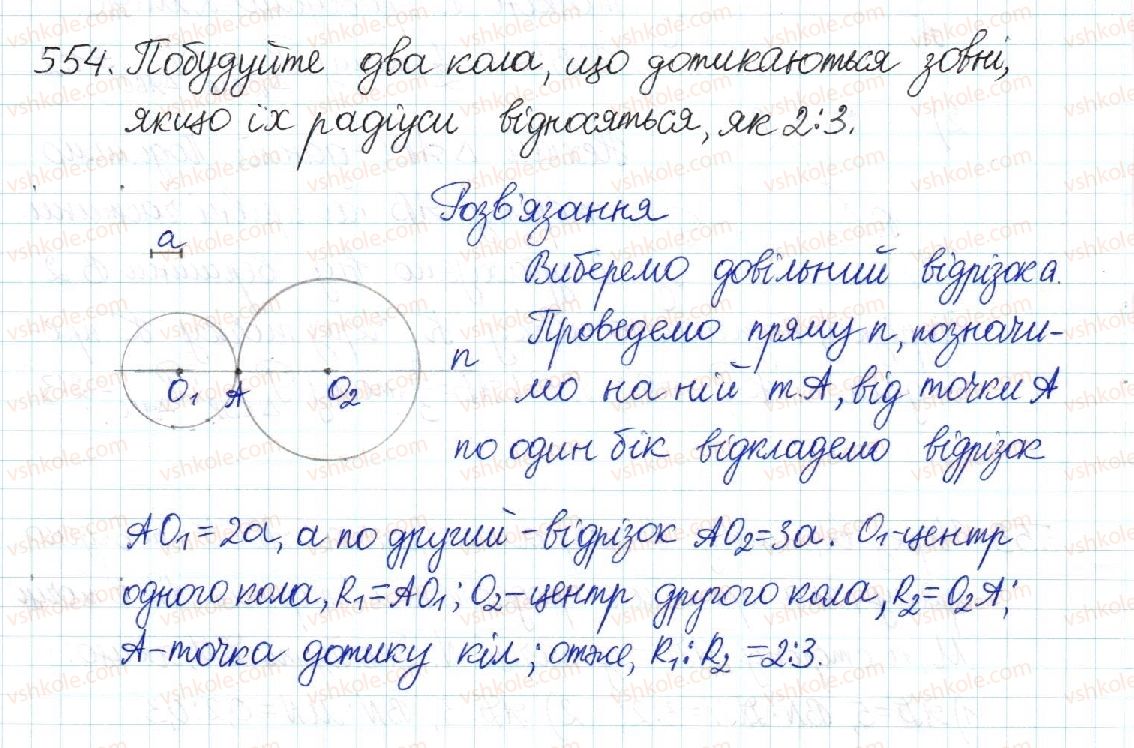 554. Побудуйте два кола, що дотикаються зовні,
якщо їх радіуси відносяться, як 2:3.
Розв'язання
a
Виберемо довільний відрізок a.
Проведемо пряму n, позначи-
n
мо на ній т. A, від точки A
O₁ A O₂
по один бік відкладемо відрізок
AO₁ = 2a, а по другий - відрізок AO₂ = 3a. O₁ - центр
одного кола, R₁ = AO₁; O₂ - центр другого кола, R₂ = O₂A;
A - точка дотику кіл; отже, R₁ : R₂ = 2:3.